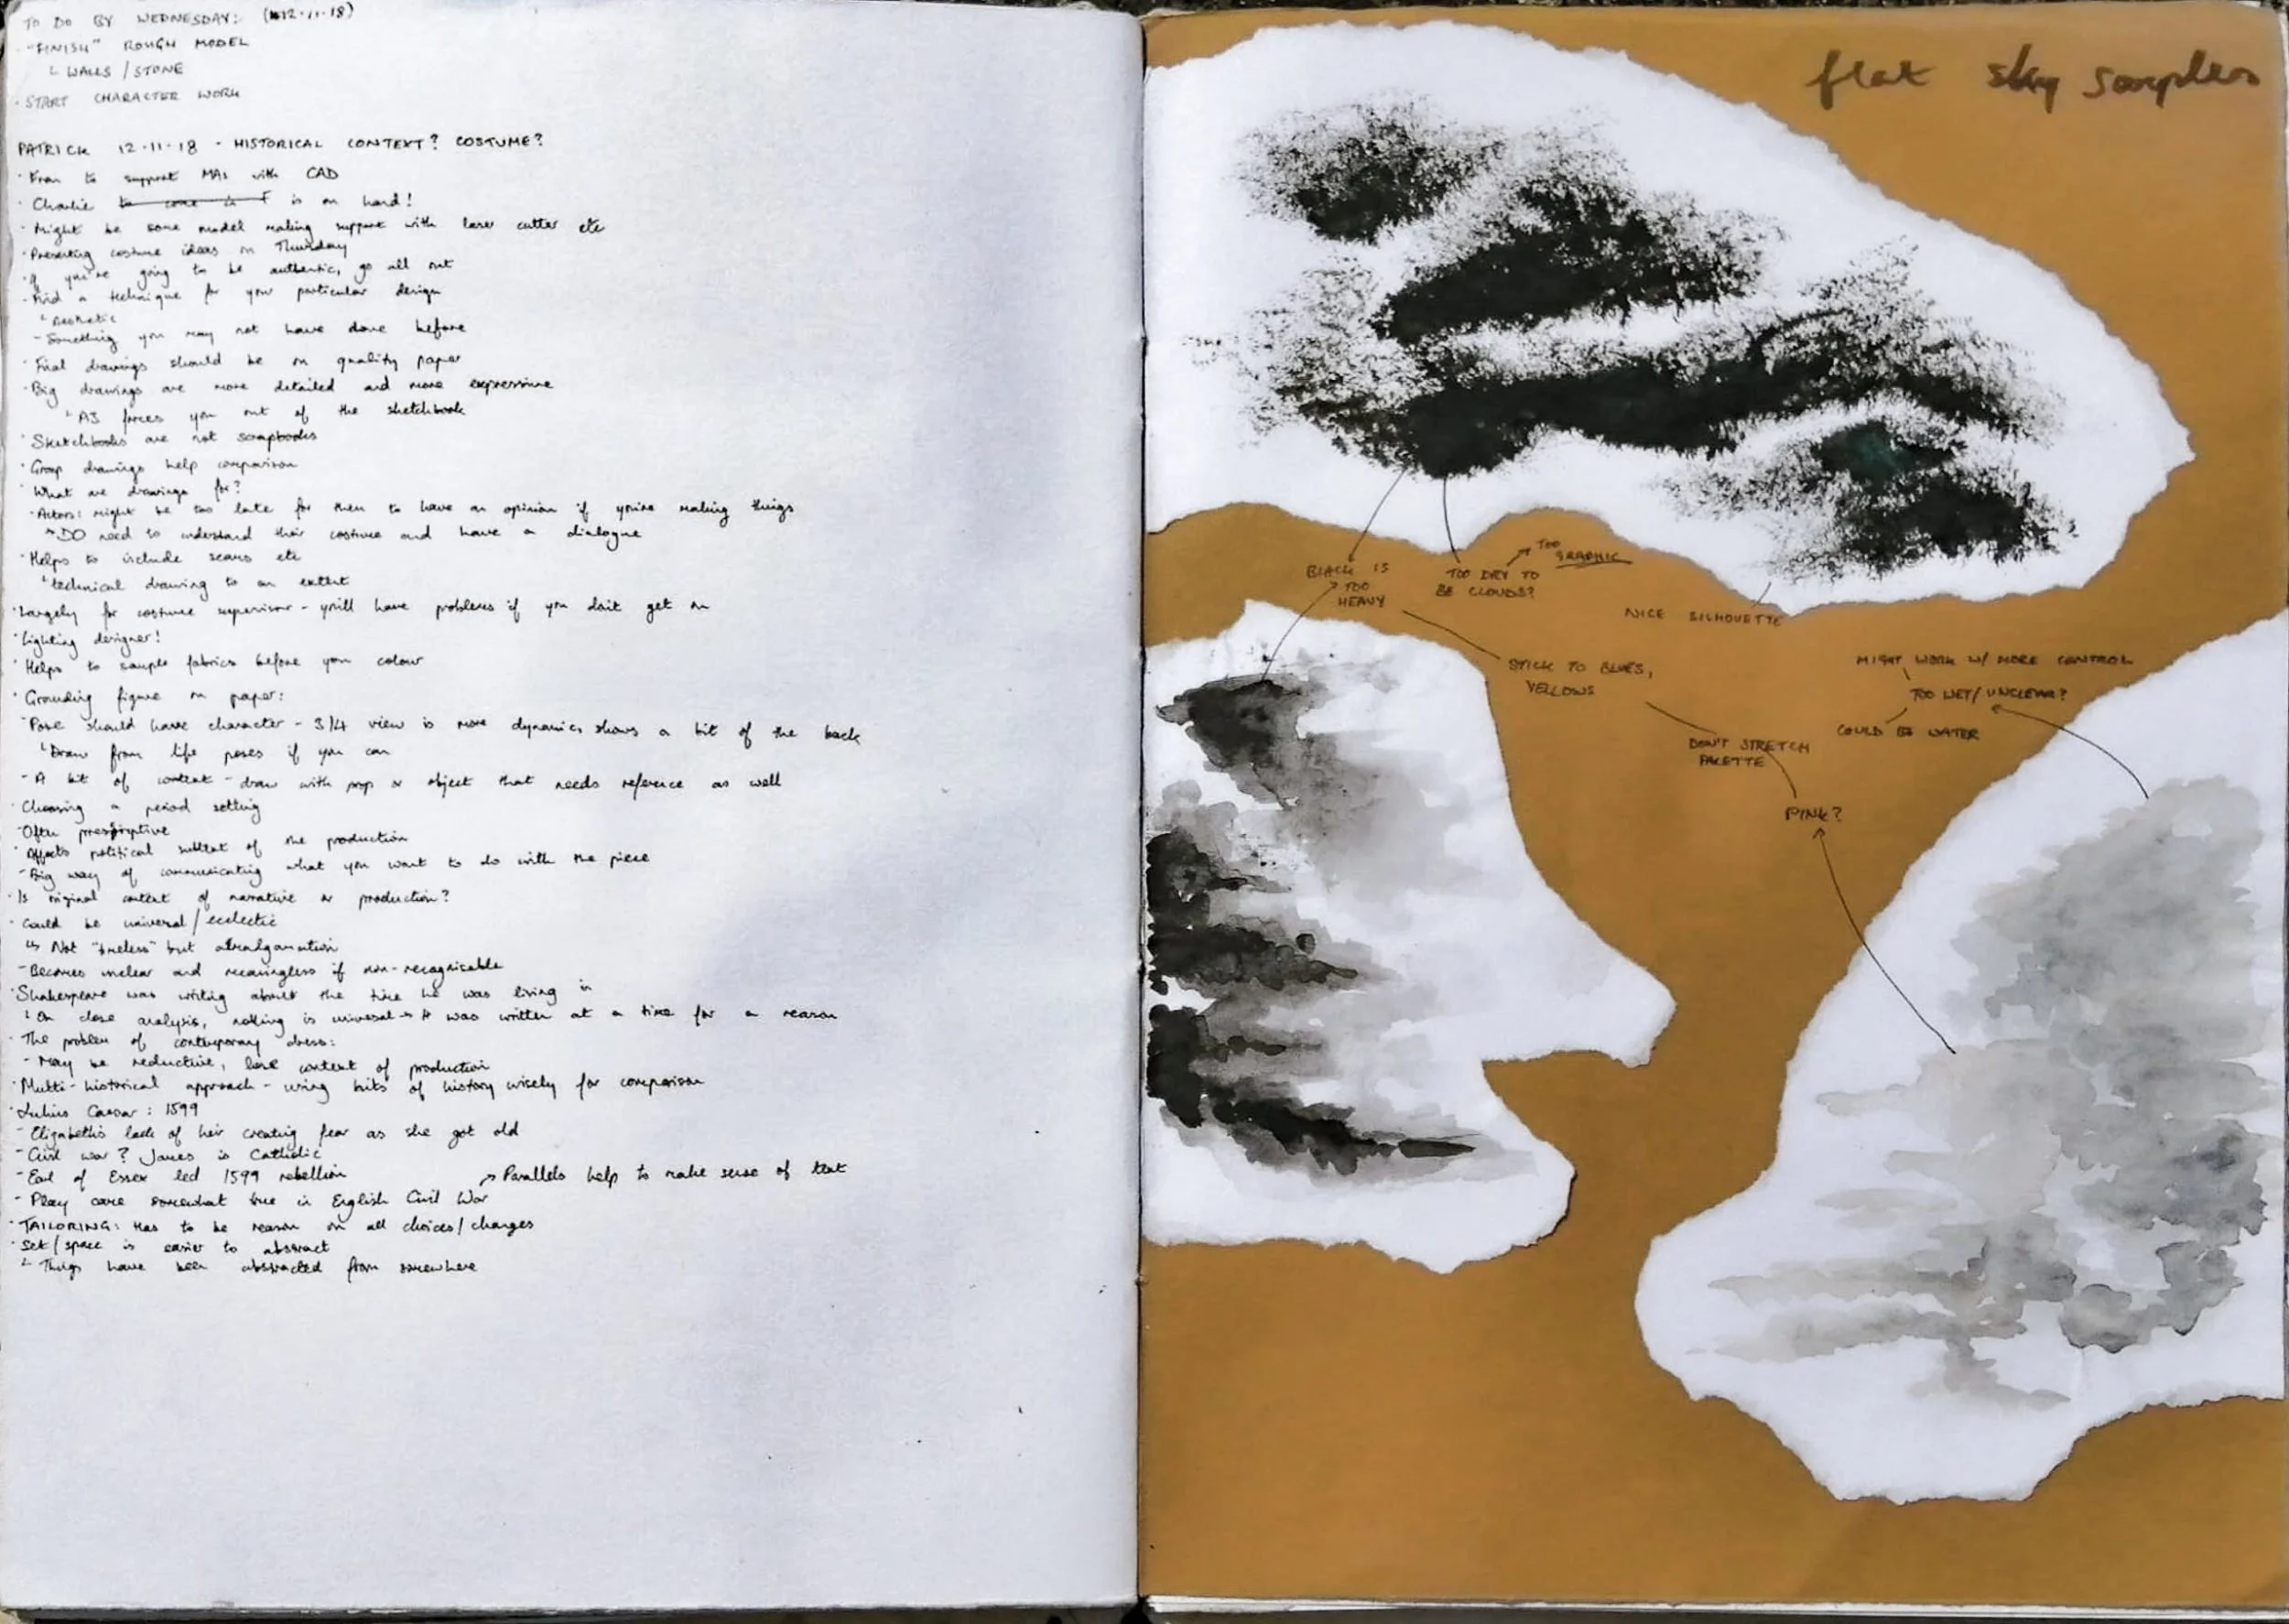 TO DO BY WEDNESDAY: (12·11·18)
- "FINISH" ROUGH MODEL
└ WALLS / STONE
· START CHARACTER WORK
PATRICK 12·11·18 - HISTORICAL CONTEXT? COSTUME?
· Fran to support MAs with CAD
· Charlie is on hand!
· Might be some model making support with laser cutter etc
· Presenting costume ideas on Thursday
· If you're going to be authentic, go all out
· Find a technique for your particular design
└ Aesthetic
- Something you may not have done before
· Final drawings should be on quality paper
· Big drawings are more detailed and more expressive
└ A3 forces you out of the sketchbook
· Sketchbooks are not scrapbooks
· Group drawings help comparison
· What are drawings for?
· Actors: might be too late for them to have an opinion if you're making things
DO need to understand their costume and have a dialogue
· Helps to include seams etc
└ technical drawing to an extent
· Largely for costume supervisor - you'll have problems if you don't get on
· Lighting designer!
· Helps to sample fabrics before you colour
· Grounding figure on paper:
- Pose should have character - 3/4 view is more dynamic, shows a bit of the back
└ Draw from life poses if you can
- A bit of context - draw with prop or object that needs reference as well
· Choosing a period setting
- Often prescriptive
· Affects political subtext of the production
- Big way of communicating what you want to do with the piece
· Is original context of narrative or production?
· Could be universal / eclectic
↳ Not "timeless" but amalgamation
- Becomes unclear and meaningless if non-recognisable
· Shakespeare was writing about the time he was living in
└ On close analysis, nothing is universal → It was written at a time for a reason
· The problem of contemporary dress:
- May be reductive, lose context of production
· Multi-historical approach - using bits of history wisely for comparison
· Julius Caesar: 1599
- Elizabeth's lack of heir creating fear as she got old
- Civil war? James is Catholic
- Earl of Essex led 1599 rebellion
→ Parallels help to make sense of text
- Play came somewhat true in English Civil War
· TAILORING: Has to be reason on all choices / changes
· Set / space is easier to abstract
└ Things have been abstracted from somewhere
flat sky samples
BLACK IS
TOO
HEAVY
TOO DRY TO
BE CLOUDS?
TOO
GRAPHIC
NICE SILHOUETTE
STICK TO BLUES,
YELLOWS
MIGHT WORK W/ MORE CONTROL
TOO WET / UNCLEAR?
COULD BE WATER
DON'T STRETCH
PALETTE
PINK?